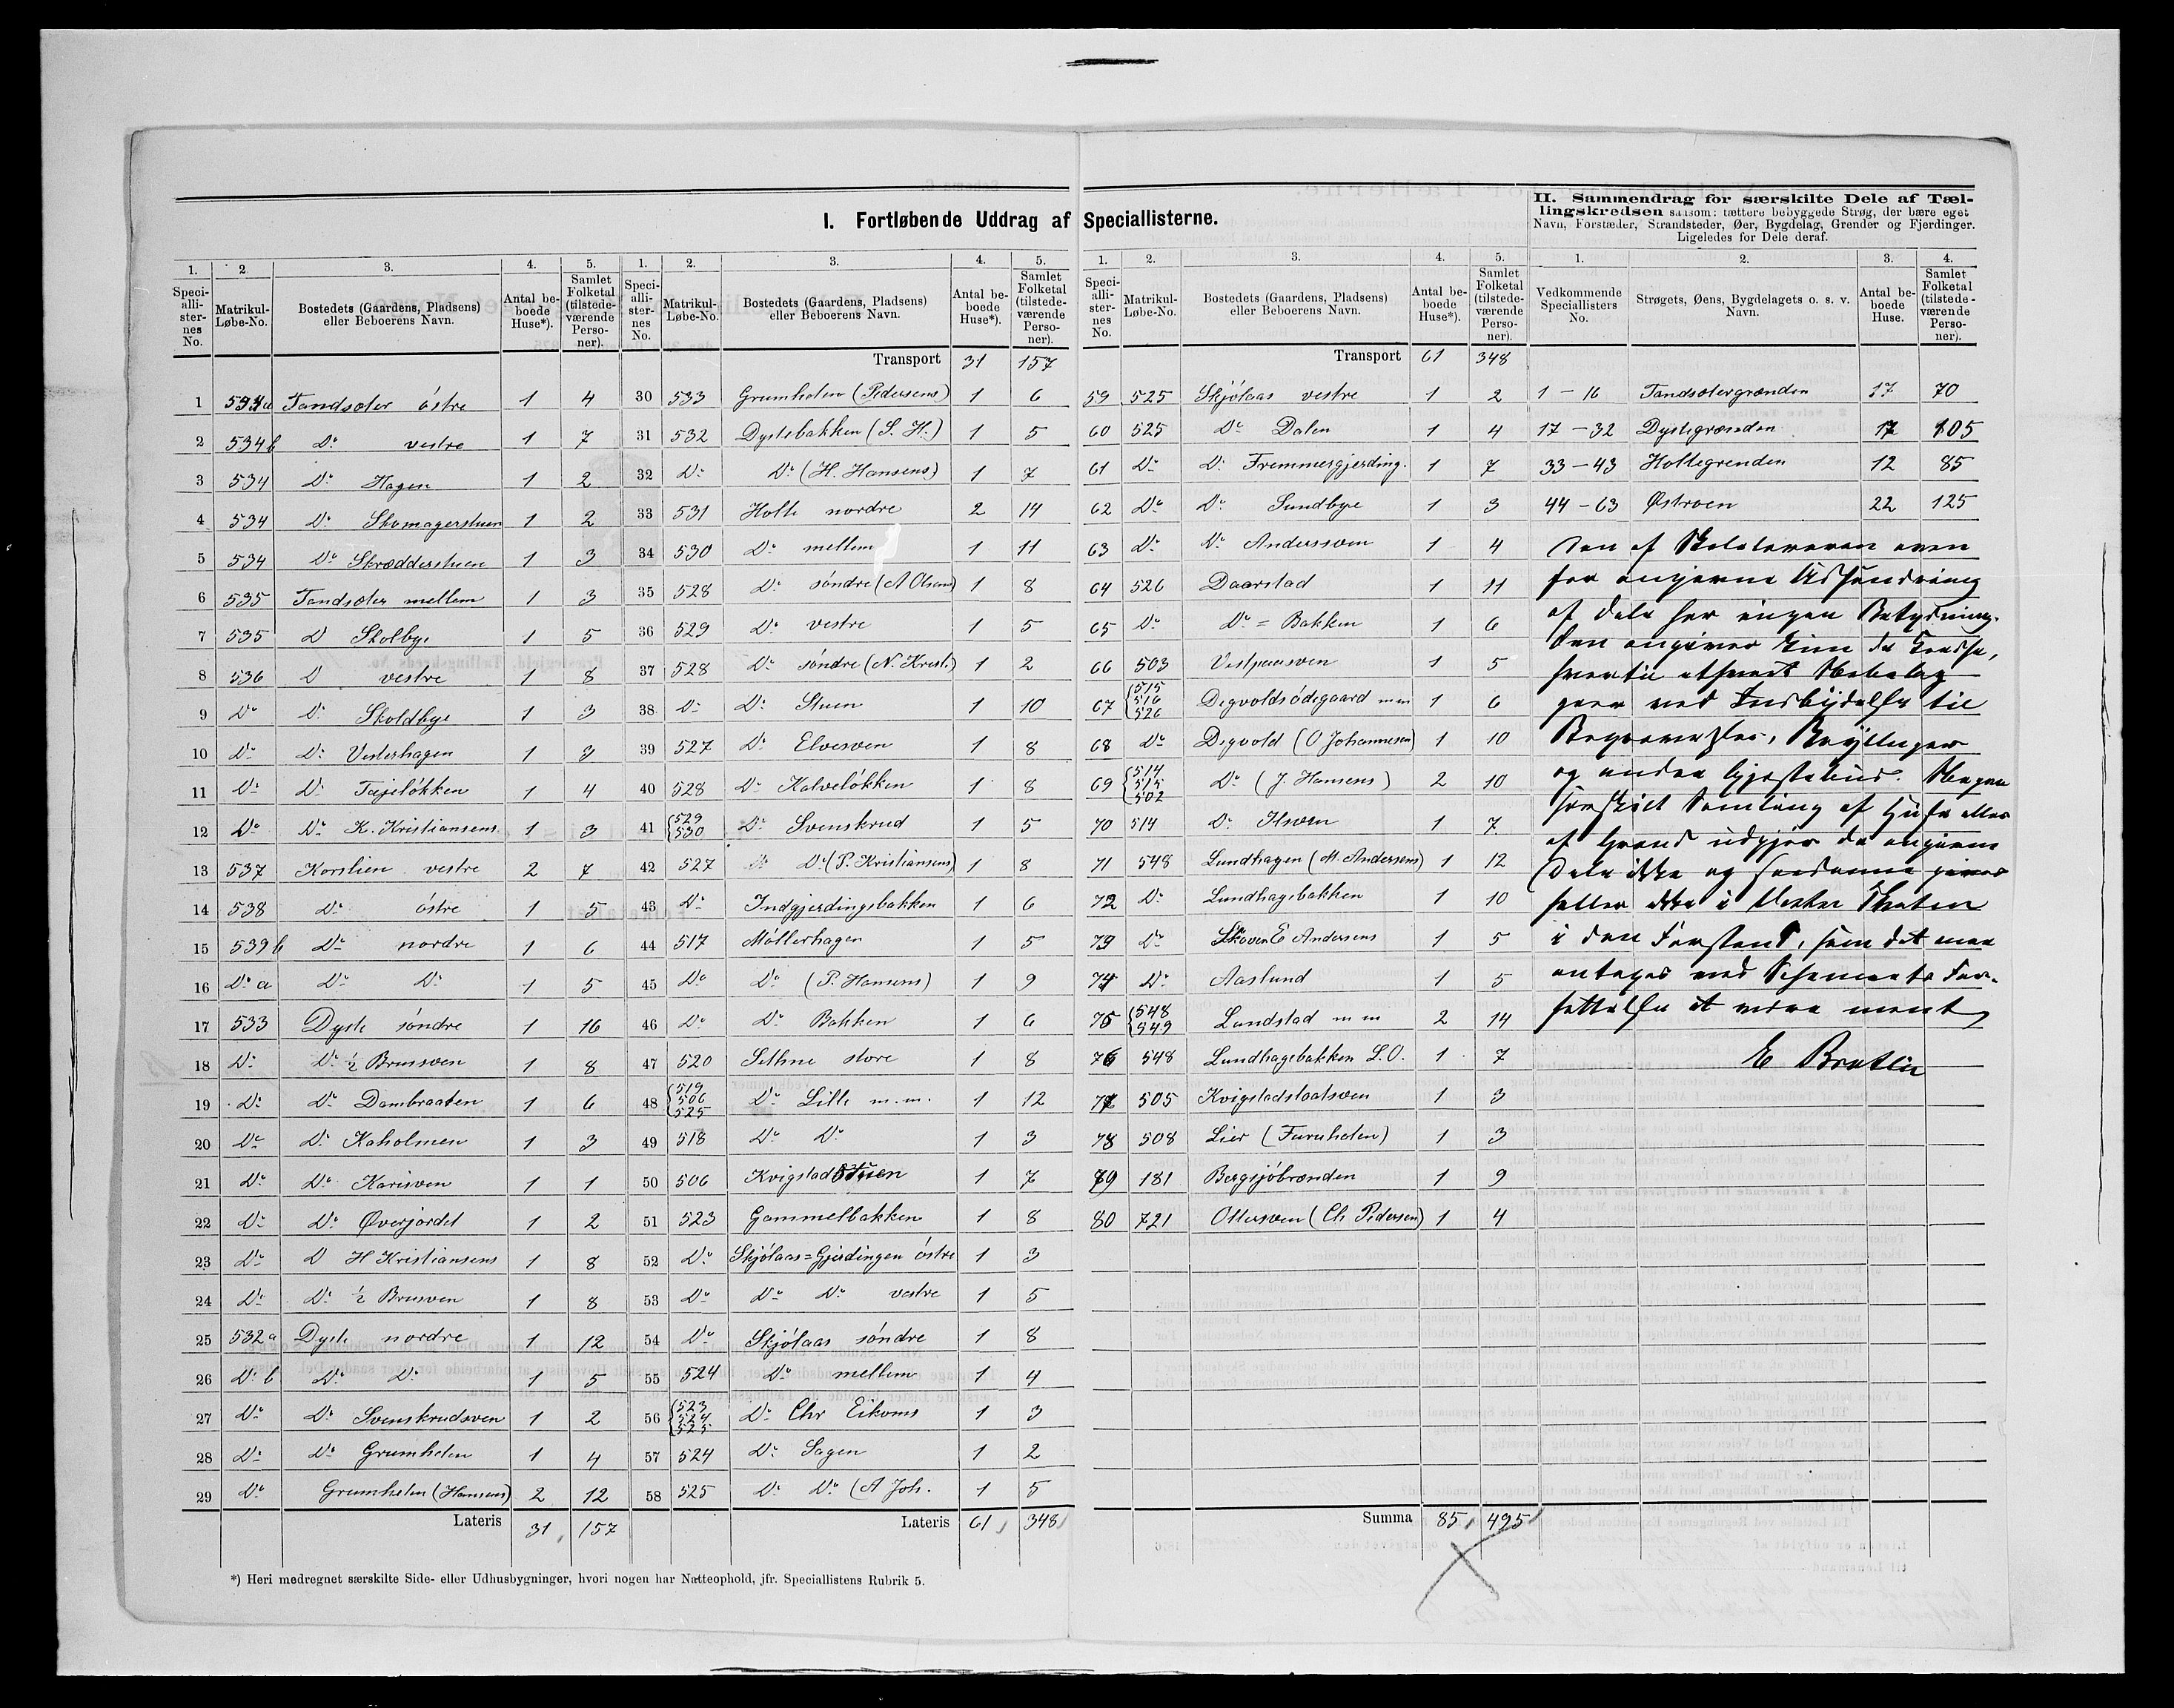 I. Fortløbende Uddrag af Speciallisterne.
II. Sammendrag for særskilte Dele af Tæl-
lingskredsen saasom: tættere bebyggede Strøg, der bære eget
Navn, Forstæder, Strandsteder, Øer, Bygdelag, Grender og Fjerdinger.
Ligeledes for Dele deraf.
1. 2. 3. 4. 5.
Speci-alli-ster-nes No. Matrikul-Løbe-No. Bostedets (Gaardens, Pladsens) eller Beboerens Navn. Antal be-boede Huse*). Samlet Folketal (tilstede-værende Perso-ner).
1 534a Tandsæter östre 1 4
2 534b Do vestre 1 7
3 534 Do Hagen 1 2
4 534 Do Skomagerstuen 1 2
5 534 Do Skrædderstuen 1 3
6 535 Tandsæter mellem 1 3
7 535 D Skolbye 1 5
8 536 D vestre 1 8
9 Do Do Skoldbye 1 3
10 Do Do Vesterhagen 1 3
11 Do Do Tajeløkken 1 4
12 Do Do K. Kristiansens 1 3
13 537 Korslien vestre 2 7
14 538 Do östre 1 5
15 539b Do nordre 1 6
16 Do a Do Do 1 5
17 533 Dyste söndre 1 16
18 Do Do ½ Brusven 1 8
19 Do Do Dambraaten 1 6
20 Do Do Kaholmen 1 3
21 Do Do Karisven 1 1
22 Do Do Øverjordet 1 2
23 Do D H Kristiansens 1 8
24 Do Do ½ Brusven 1 8
25 532a Dyste nordre 1 12
26 Do b Do Do 1 5
27 Do Do Svenskrudsven 1 2
28 Do Do Grumholen 1 4
29 Do Grumholen (Hansens) 2 12
Lateris 31 157
1. 2. 3. 4. 5.
Speci-alli-ster-nes No. Matrikul-Løbe-No. Bostedets (Gaardens, Pladsens) eller Beboerens Navn. Antal be-boede Huse*). Samlet Folketal (tilstede-værende Perso-ner).
Transport 31 157
30 533 Grumholen (Pedersens) 1 6
31 532 Dystebakken (S. H.) 1 5
32 Do Do (H. Hansens) 1 7
33 531 Holte nordre 2 14
34 530 Do mellem 1 11
35 528 Do söndre (A Olsens) 1 8
36 529 Do vestre 1 5
37 528 Do söndre (N. Krist.) 1 2
38 Do Do Stuen 1 10
39 527 Do Elvesven 1 8
40 528 Do Kalveløkken 1 8
41 529 530 Do Svenskrud 1 5
42 527 Do (P. Kristiansens) 1 8
43 Do Indgjerdingsbakken 1 6
44 517 Möllerhagen 1 5
45 Do Do (P. Hansens) 1 9
46 Do Do Bakken 1 6
47 520 Sethne store 1 8
48 519 506 525 Do Lille m.m. 1 12
49 518 Do Do 1 3
50 506 Kvigstadstuen 1 7
51 523 Gammelbakken 1 8
52 Do Skjölaas=Gjerdingen östre 1 3
53 Do Do Do vestre 1 5
54 Do Skjölaas söndre 1 8
55 524 Do mellem 1 4
56 523 524 525 Do Chr Eikoms 1 3
57 524 Do Sagen 1 2
58 525 Do Do (A Joh. 1 5
Lateris 61 348
1. 2. 3. 4. 5.
Speci-alli-ster-nes No. Matrikul-Løbe-No. Bostedets (Gaardens, Pladsens) eller Beboerens Navn. Antal be-boede Huse*). Samlet Folketal (tilstede-værende Perso-ner).
Transport 61 348
59 525 Skjölaas vestre 1 2
60 525 Do Dalen 1 4
61 Do Do Fremmergjerding. 1 7
62 Do Do Sundbye 1 3
63 Do Do Anderssven 1 4
64 526 Daarstad 1 11
65 Do Do = Bakken 1 6
66 503 Vestpaasven 1 5
67 515 516 526 Degvoldsödegaard mm 1 6
68 Do Degvold (O Johannesen) 1 10
69 514 515 502 Do (J. Hansens) 2 10
70 514 Do Ilsven 1 7
71 548 Lundhagen (M. Andersens) 1 12
72 Do Lundhagebakken 1 10
73 Do Skoven E Andersens 1 5
74 Do Aaslund 1 5
75 548 549 Lundstad m m 2 14
76 548 Lundhagebakken L.O. 1 7
77 505 Kvigstadslaatsven 1 3
78 508 Lier (Furuholen) 1 3
79 181 Bergsjöbrænden 1 9
80 721 Ottersven (Ch Pedersen) 1 4
Summa 85 495
1. 2. 3. 4.
Vedkommende Speciallisters No. Strøgets, Øens, Bygdelagets o. s. v. Navn. Antal be-boede Huse. Samlet Folketal (tilstede-værende Perso-ner).
1 – 16 Tandsætergrænden 17 70
17 – 32 Dystegrænden 17 105
33 – 43 Holtegrenden 12 85
44 – 63 Østroen 22 125
Den af Skolelæreren oven
for angivne Udsondring
af Dele har ingen Betydning.
Den angiver kun de Kredse,
hvortil ethvert Nabolag
gaar ved Indbydelse til
Begravelser, Bryllupper
og andre Gjæstebud. Nogen
særskilt Samling af Huse eller
af Grend udgjør de angivne
Dele ikke og saadanne gives
heller ikke i Vester Thoten
i den Forstand, som det maa
antages ved Schemaets For-
fattelse at være ment
E Bratlie
*) Heri medregnet særskilte Side- eller Udhusbygninger, hvori nogen har Natteophold, jfr. Speciallistens Rubrik 5.